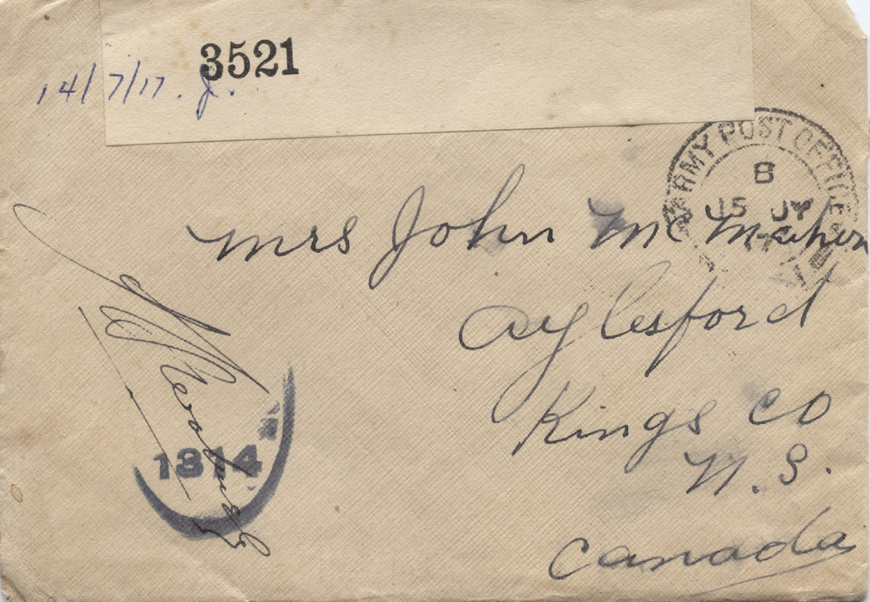 3521
14/7/17. J.
ARMY POST OFFICE
8
15 JY
Mrs John Mc Mahon
Aylesford
Kings Co
N.S.
Canada
1314